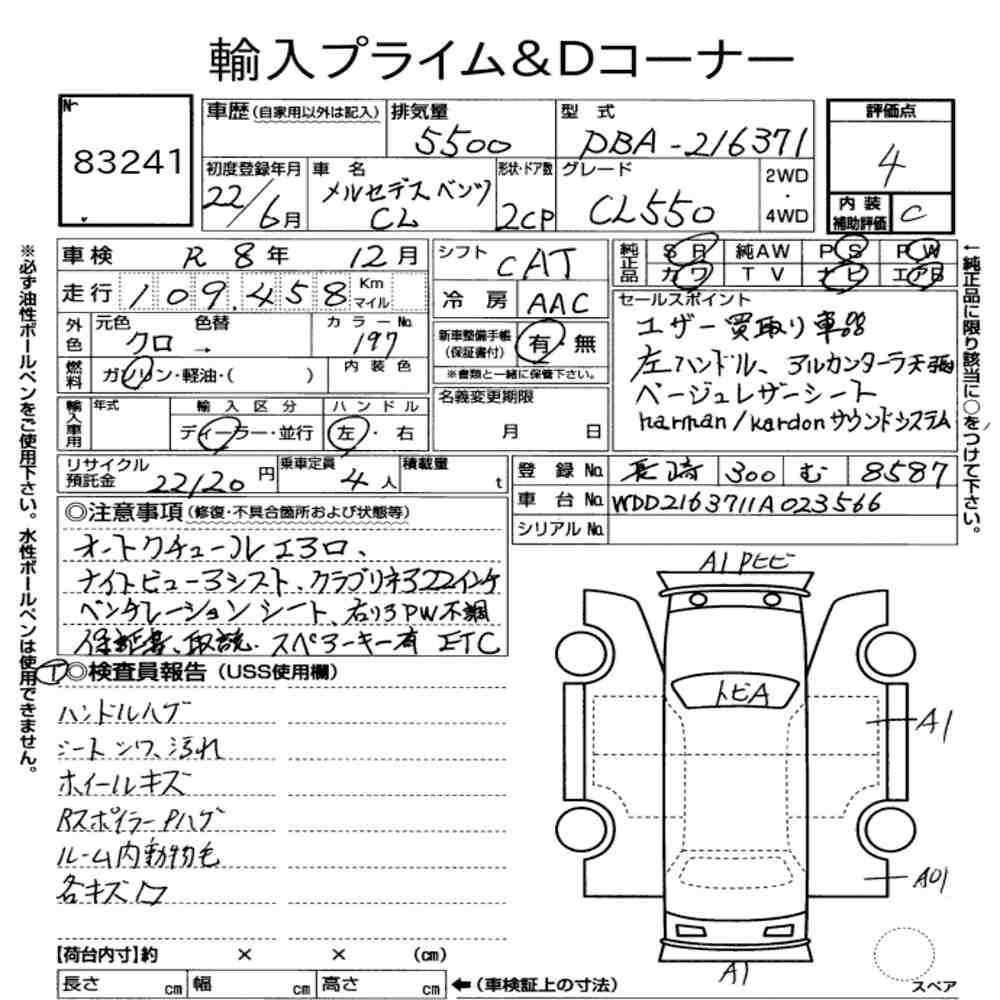 輸入プライム&Dコーナー
No
83241
車歴(自家用以外は記入)
排気量
5500
型 式
DBA-216371
評価点
4
初度登録年月
22/6月
車 名
メルセデスベンツ
CL
形状・ドア数
2CP
グレード
CL550
2WD
・
4WD
内 装
補助評価
C
車検 R 8年 12月
シフト
CAT
純正品
SR 純AW PS PW
カワ TV ナビ エアB
走行 109.458 Km マイル
冷 房 AAC
セールスポイント
ユザー買取り車器
左ハンドル、アルカンターラ天張
ベージュレザーシート
harman/kardonサウンドシステム
外色
元色 色替
クロ →
カラーNo.
197
新車整備手帳
(保証書付)
有・無
※書類と一緒に保管下さい。
燃料
ガソリン・軽油・( )
内 装 色
名義変更期限
月 日
輸入車用
年式
輸 入 区 分
ディーラー・並行
ハ ン ド ル
左・右
リサイクル
預託金
22120円
乗車定員
4人
積載量
t
登 録 No. 長崎 300 む 8587
車 台 No. WDD2163711A023566
シリアル No.
◎注意事項(修復・不具合箇所および状態等)
オートクチュールエアロ、
ナイトビューアシスト、クラブリネア22インチ
ベンタレーションシート、右リアPW不調
保証書、取説、スペアーキー有 ETC
◎検査員報告(USS使用欄)
ハンドルハゲ
シートシワ、汚れ
ホイールキズ
Rスポイラー Pハゲ
ルーム内動物毛
各キズ凹
【荷台内寸】約 × × (cm)
長さ cm 幅 cm 高さ cm
←(車検証上の寸法)
A1 Pヒビ
トビA
A1
A01
A1
スペア
※必ず油性ボールペンをご使用下さい。水性ボールペンは使用できません。
←純正品に限り該当に○をつけて下さい。